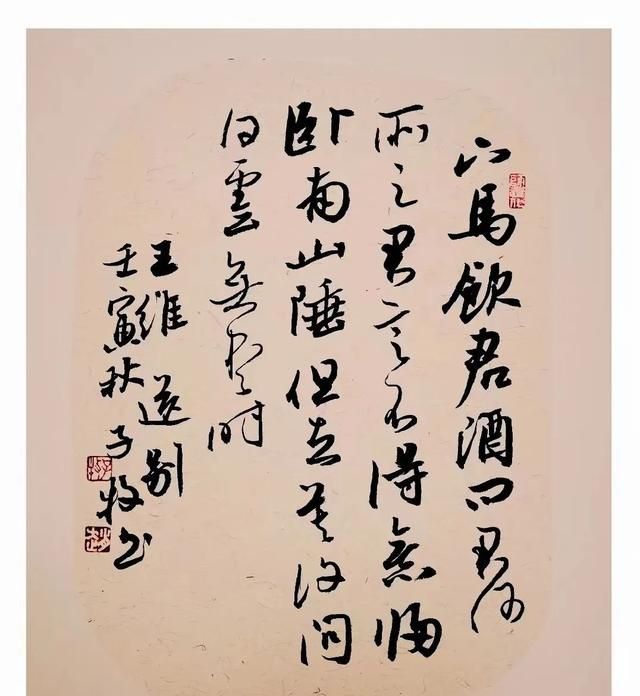 下馬飲君酒问君何
所之君言不得意归
卧南山陲但去莫復问
白雲無尽时
王維送别
壬寅秋子牧书